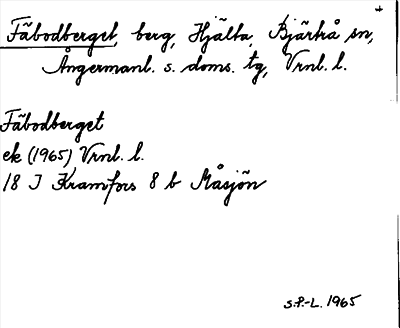 +
Fäbodberget, berg, Hjälta, Bjärtrå sn,
Ångermanl. s. doms. tg, Vrnl. l.
Fäbodberget
ek (1965) Vrnl. l.
18 J Kramfors 8 b Måsjön
S.P.-L. 1965